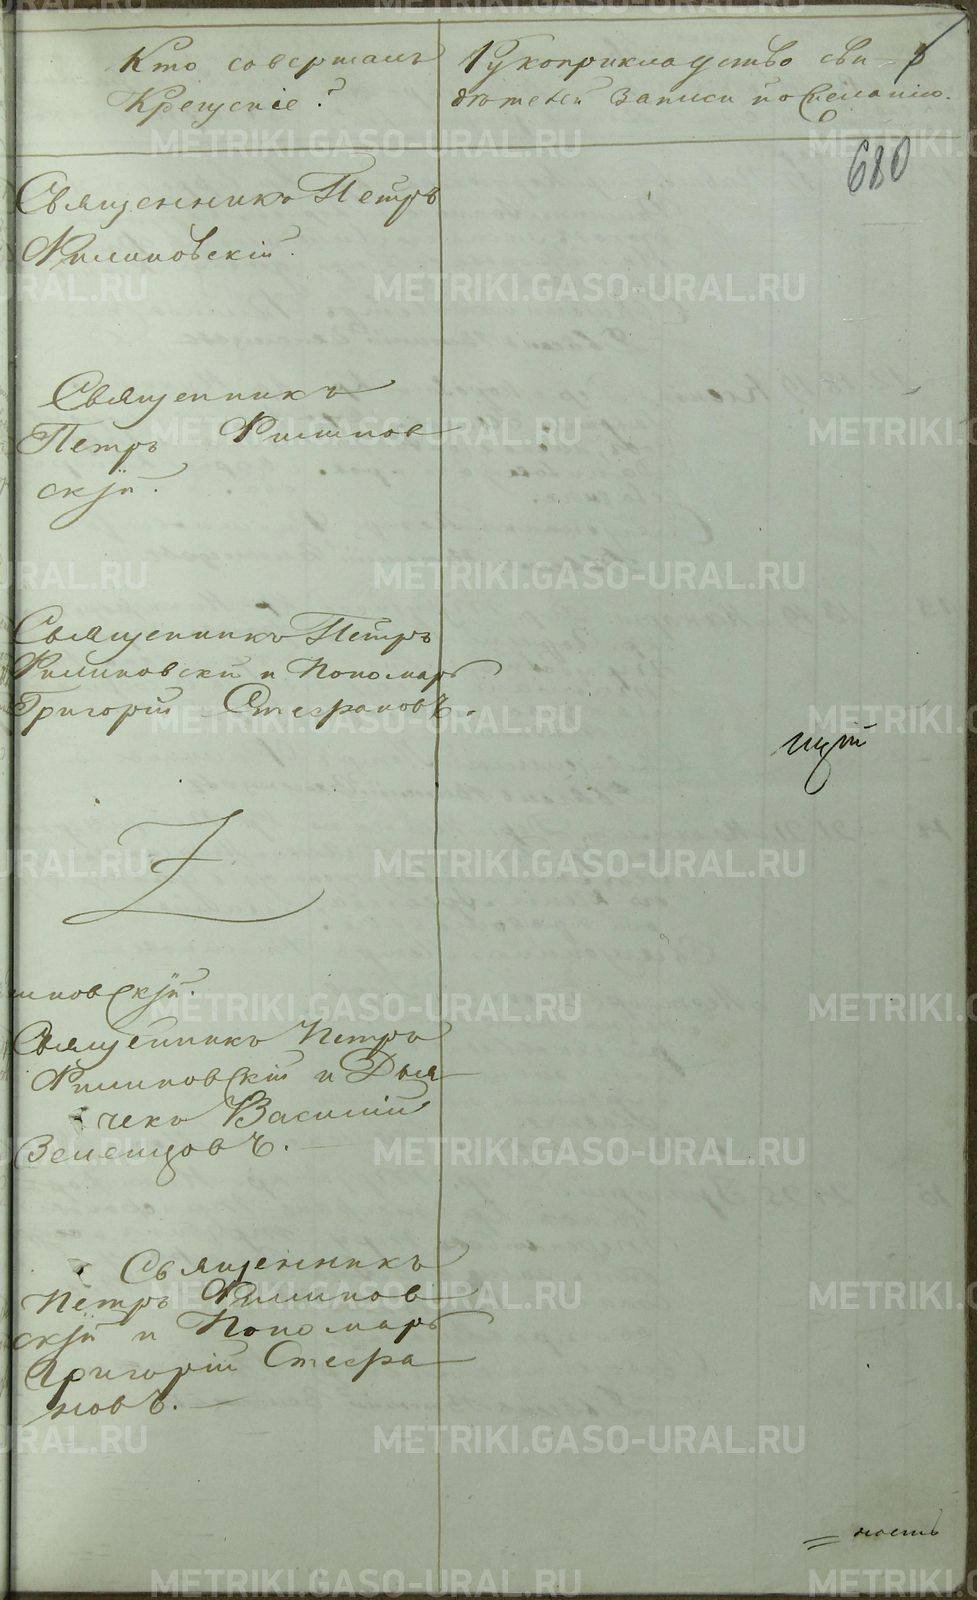 Кто совершалъ
Крещеніе?
Рукоприкладство сви-
дѣтелей записи по желанію.
680
Священникъ Петръ
Филиповскій.
Священникъ
Петръ Филипов
скій.
Священникъ Петръ
Филиповскій и Пономарь
Григорій Стефановъ.
щій
Z
иповскій.
Священникъ Петръ
Филиповскій и Дья
чекъ Василій
Земенцовъ.
Священникъ
Петръ Филипов
скій и Пономарь
Григорій Стефа
новъ.
= ность
METRIKI.GASO-URAL.RU